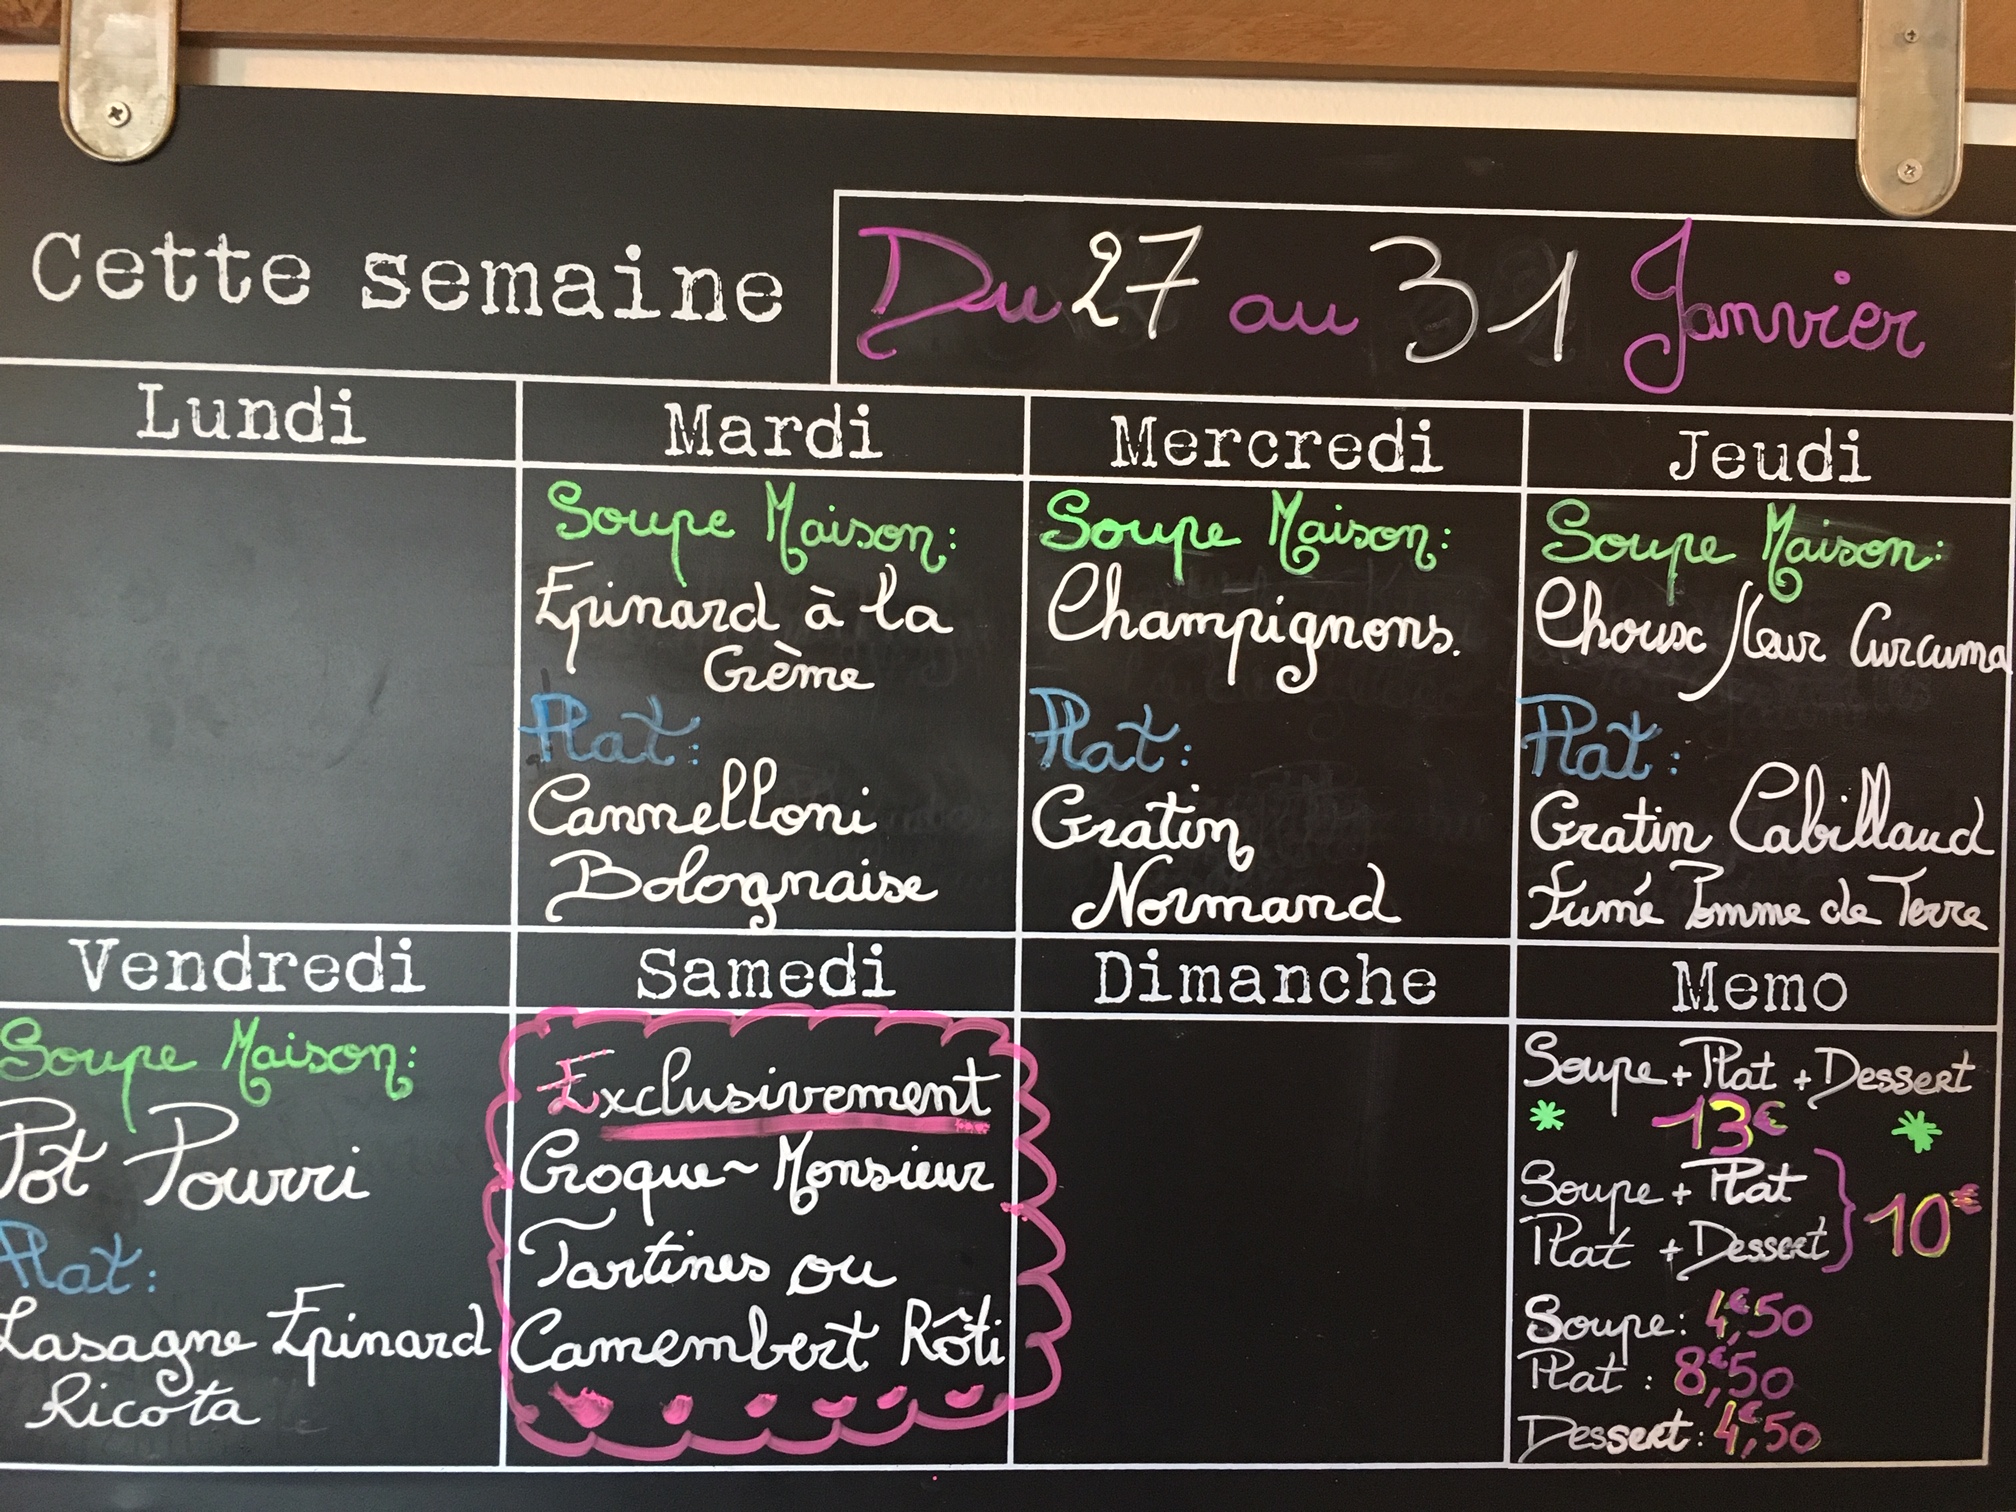 Cette semaine
Du 27 au 31 Janvier
Lundi
Mardi
Soupe Maison:
Epinard à la
Crème
Plat:
Cannelloni
Bolognaise
Mercredi
Soupe Maison:
Champignons.
Plat:
Gratin
Normand
Jeudi
Soupe Maison:
Choux fleur Curcuma
Plat:
Gratin Cabillaud
Fumé Pomme de Terre
Vendredi
Soupe Maison:
Pot Pourri
Plat:
Lasagne Epinard
Ricota
Samedi
Exclusivement
Croque~Monsieur
Tartines ou
Camembert Rôti
Dimanche
Memo
Soupe + Plat + Dessert
* 13€ *
Soupe + Plat
Plat + Dessert } 10€
Soupe: 4€,50
Plat: 8€,50
Dessert: 4€,50